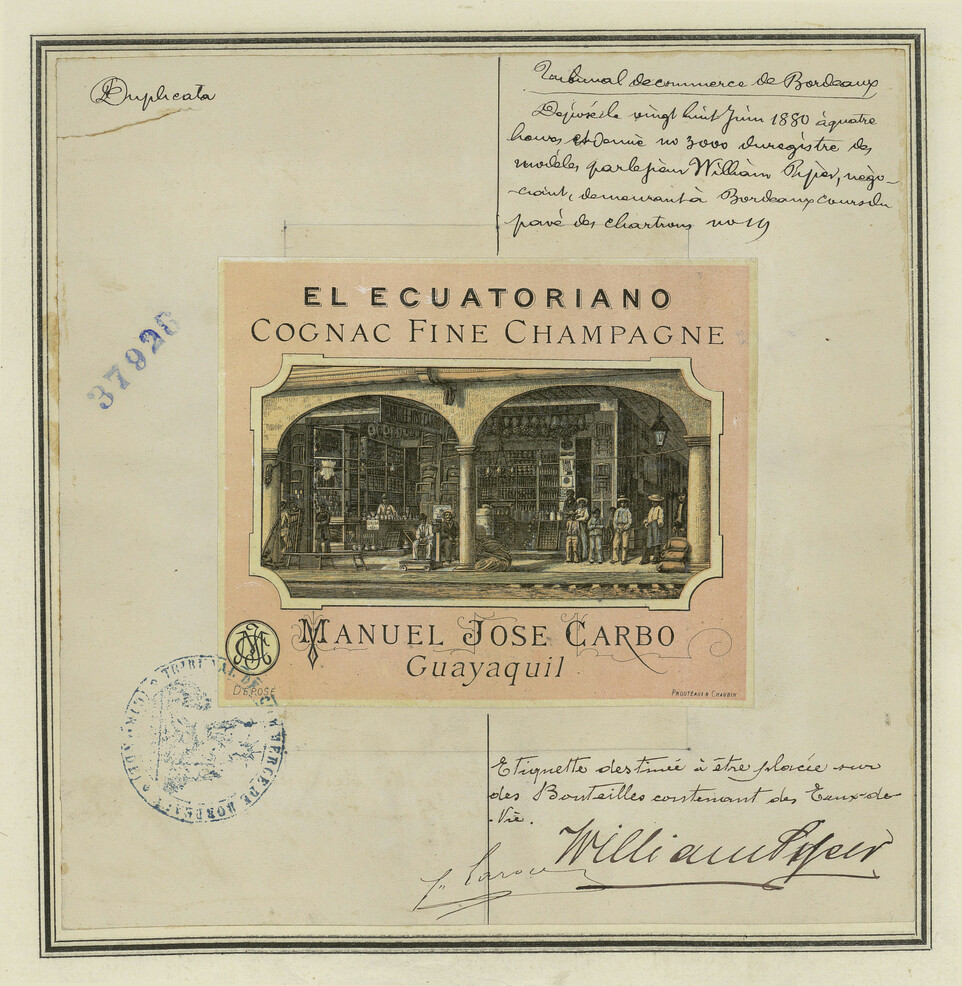 Duplicata
Tribunal de commerce de Bordeaux
Déposé le vingt huit Juin 1880 à quatre
heures et demie no 3000 du registre des
modèles par le sieur William Pyper, négo-
ciant, demeurant à Bordeaux cours du
pavé des chartrons no 19
37928
EL ECUATORIANO
COGNAC FINE CHAMPAGNE
MANUEL JOSE CARBO
Guayaquil
DÉPOSÉ
PROUTEAUX & CHAUBIN
TRIBUNAL DE COMMERCE DE BORDEAUX
Etiquette destinée à être placée sur
des Bouteilles contenant des Eaux-de-
Vie.
William Pyper